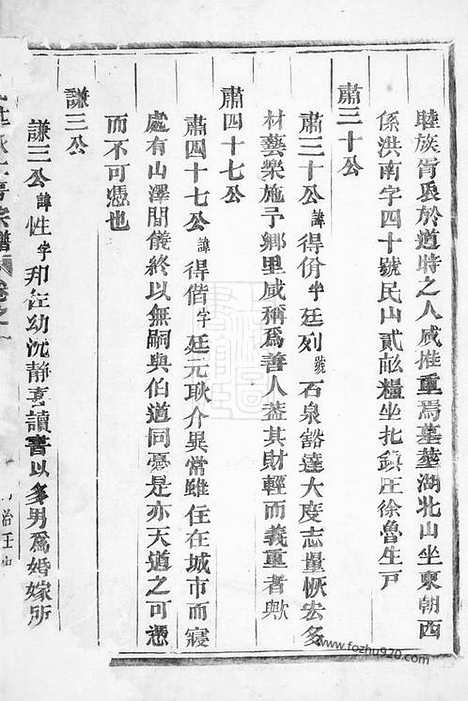 睦族胥良於道時之人咸推重焉墓葬湖北山坐東朝西
係洪南字四十號民山貳畝糧坐北鎮庄徐魯生戶
肅三十公
肅三十公諱得份字廷列號石泉豁達大度志量恢宏多
材藝樂施予鄉里咸稱爲善人蓋其財輕而義重者歟
肅四十七公
肅四十七公諱得偕字廷元耿介異常雖住在城市而寢
處有山澤間儀終以無嗣與伯道同憂是亦天道之可憑
而不可憑也
謙三公
謙三公諱性字邦在幼沉静喜讀書以多男爲婚嫁所
宗譜
卷之一
www.fozhu920.com